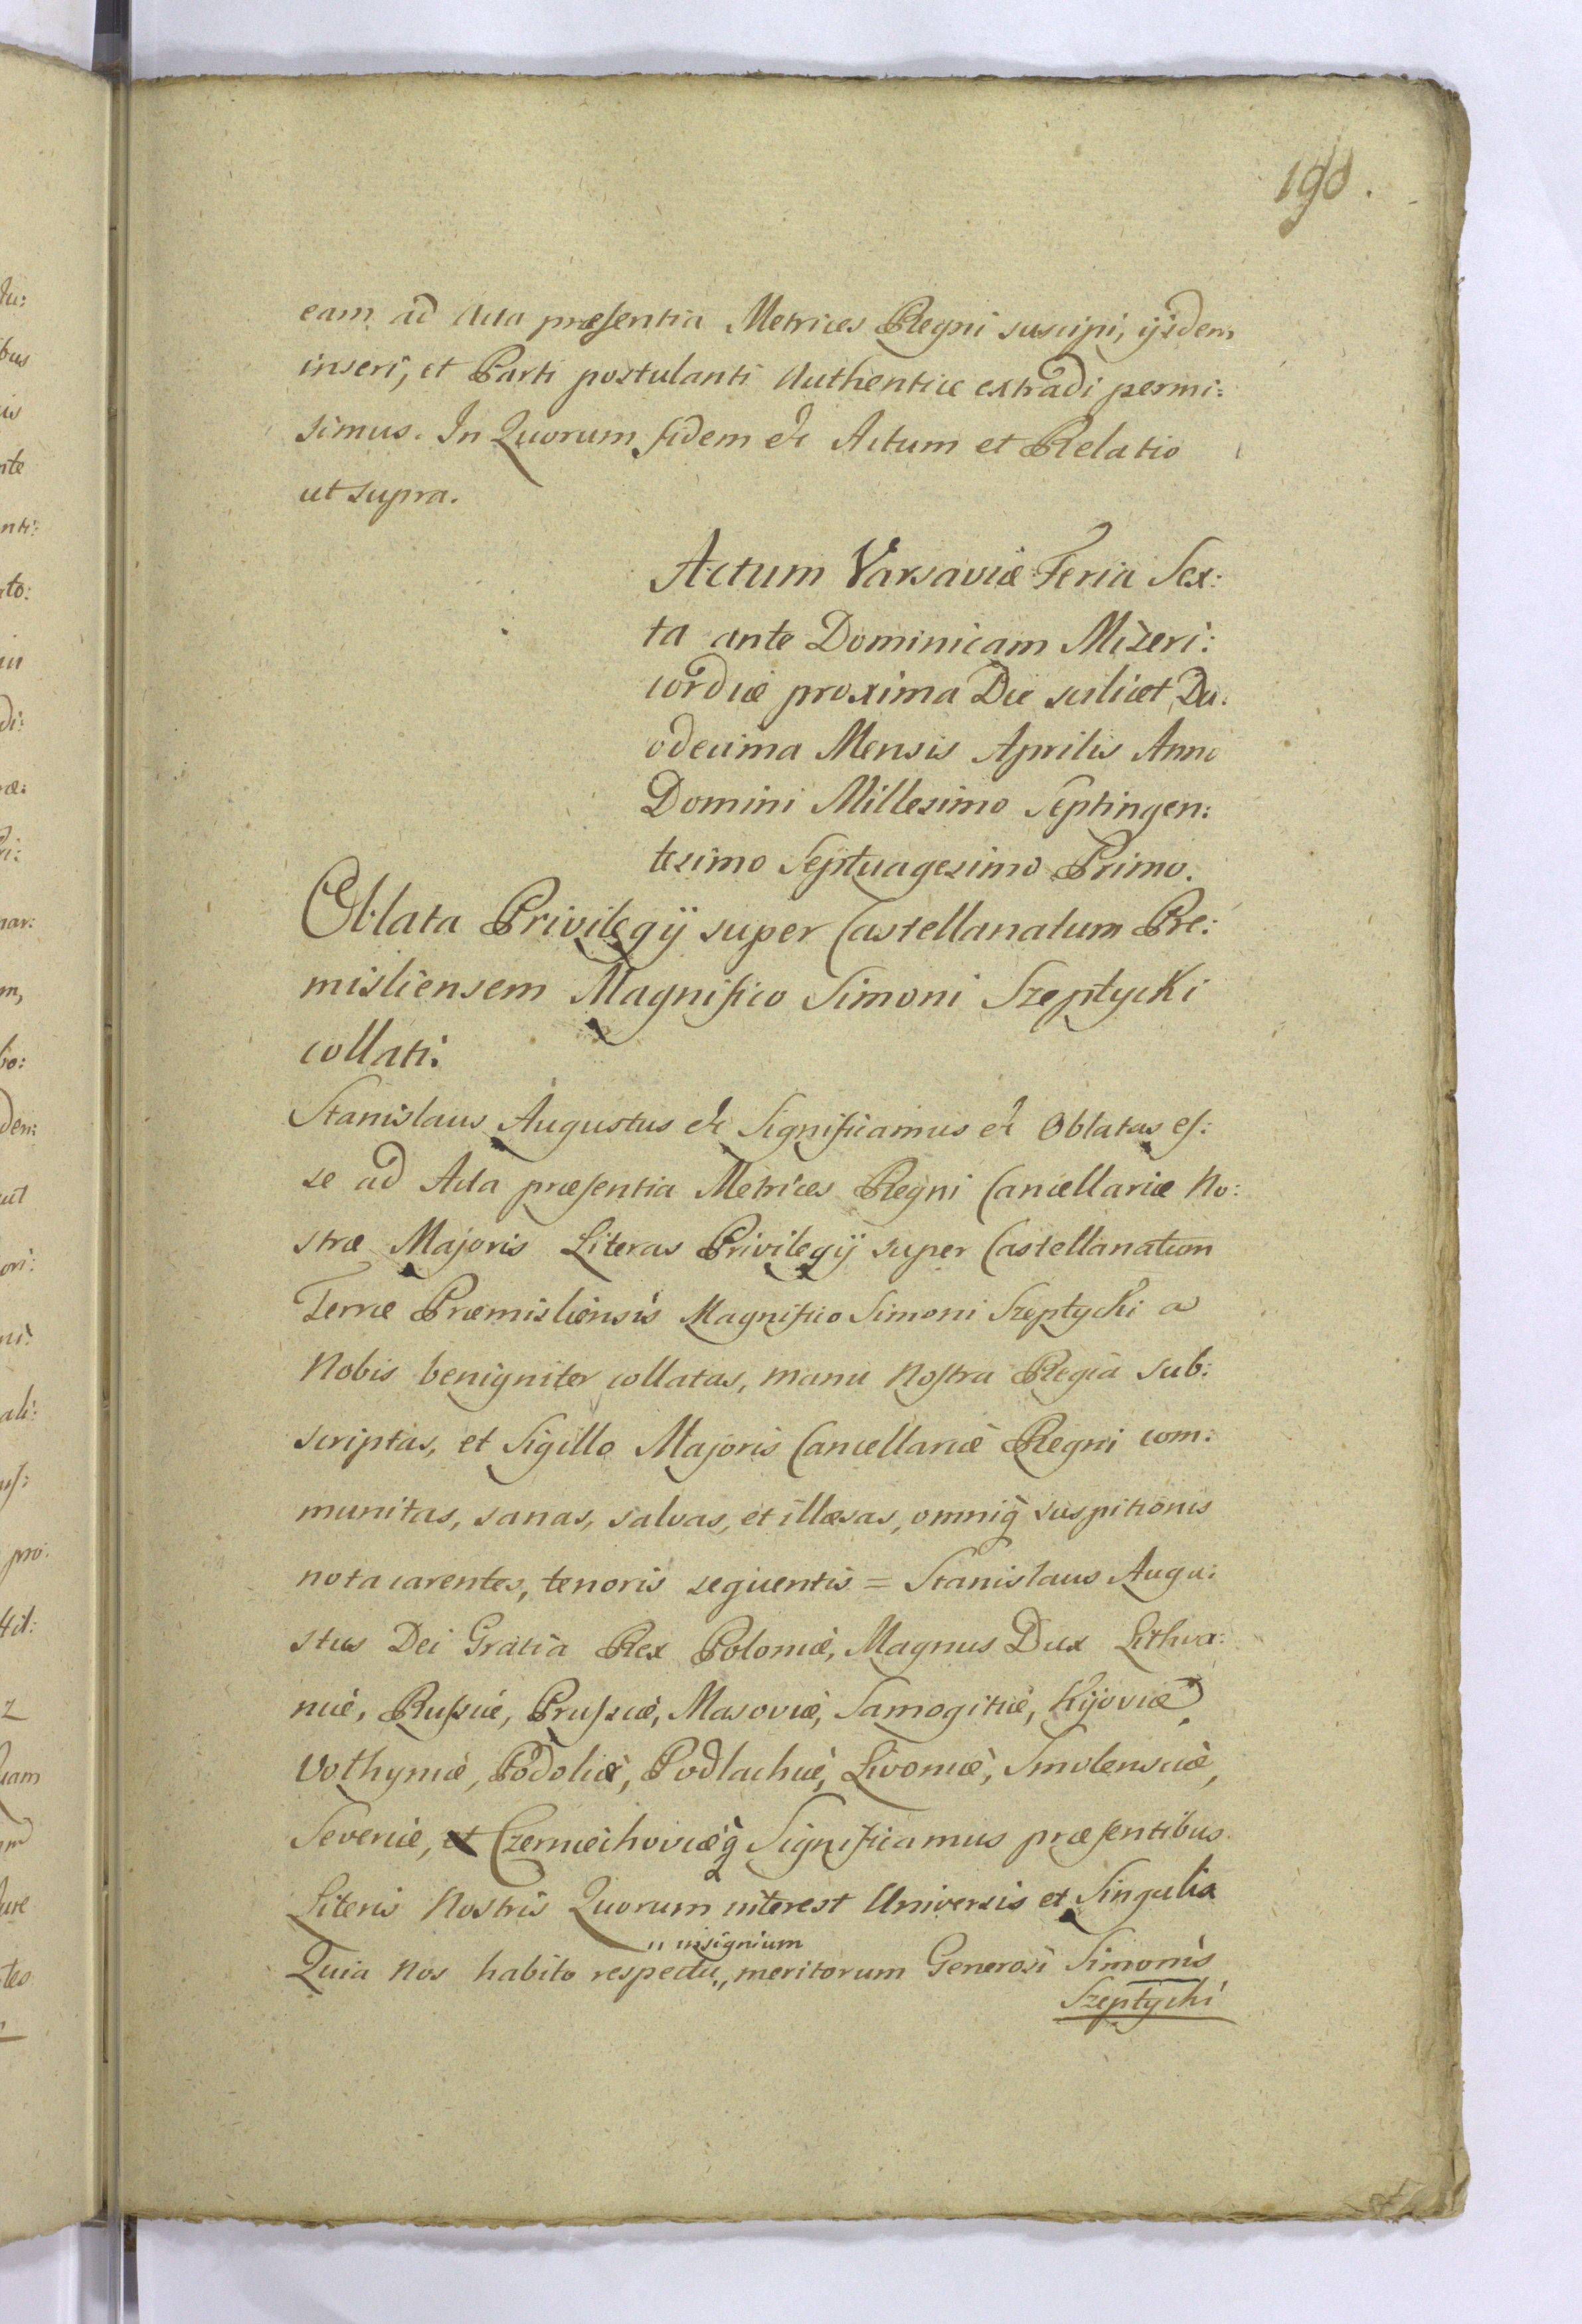 190.
eam ad Acta præsentia Metrices Regni suscipi, ijsdem
inseri, et Parti postulanti Authentice extradi permi:
simus. In Quorum fidem etc Actum et Relatio
ut supra.
Actum Varsaviæ Feria Sex:
ta ante Dominicam Mizeri:
cordiæ proxima Die scilicet Du:
odecima Mensis Aprilis Anno
Domini Millesimo Septingen:
tesimo Septuagesimo Primo.
Oblata Privilegij super Castellanatum Pre:
misliensem Magnifico Simoni Szeptycki
collati.
Stanislaus Augustus etc Significamus etc Oblatas es:
se ad Acta præsentia Metrices Regni Cancellariæ No:
stræ Majoris Literas Privilegij super Castellanatum
Terræ Præmisliensis Magnifico Simoni Szeptycki a
Nobis benigniter collatas, manu Nostra Regia sub:
scriptas, et Sigillo Majoris Cancellariæ Regni com:
munitas, sanas, salvas, et illæsas, omniq suspitionis
nota carentes, tenoris seqventis = Stanislaus Augu:
stus Dei Gratia Rex Poloniæ, Magnus Dux Lithva:
niæ, Russiæ, Prussiæ, Masoviæ, Samogitiæ, Kijoviæ,
Volhyniæ, Podoliæ, Podlachiæ, Livoniæ, Smolensciæ,
Severiæ, et Czerniechoviæq Significamus præsentibus
Literis Nostris Quorum interest Universis et Singulis
„ insignium
Quia Nos habito respectu „ meritorum Generosi Simonis
Szeptycki